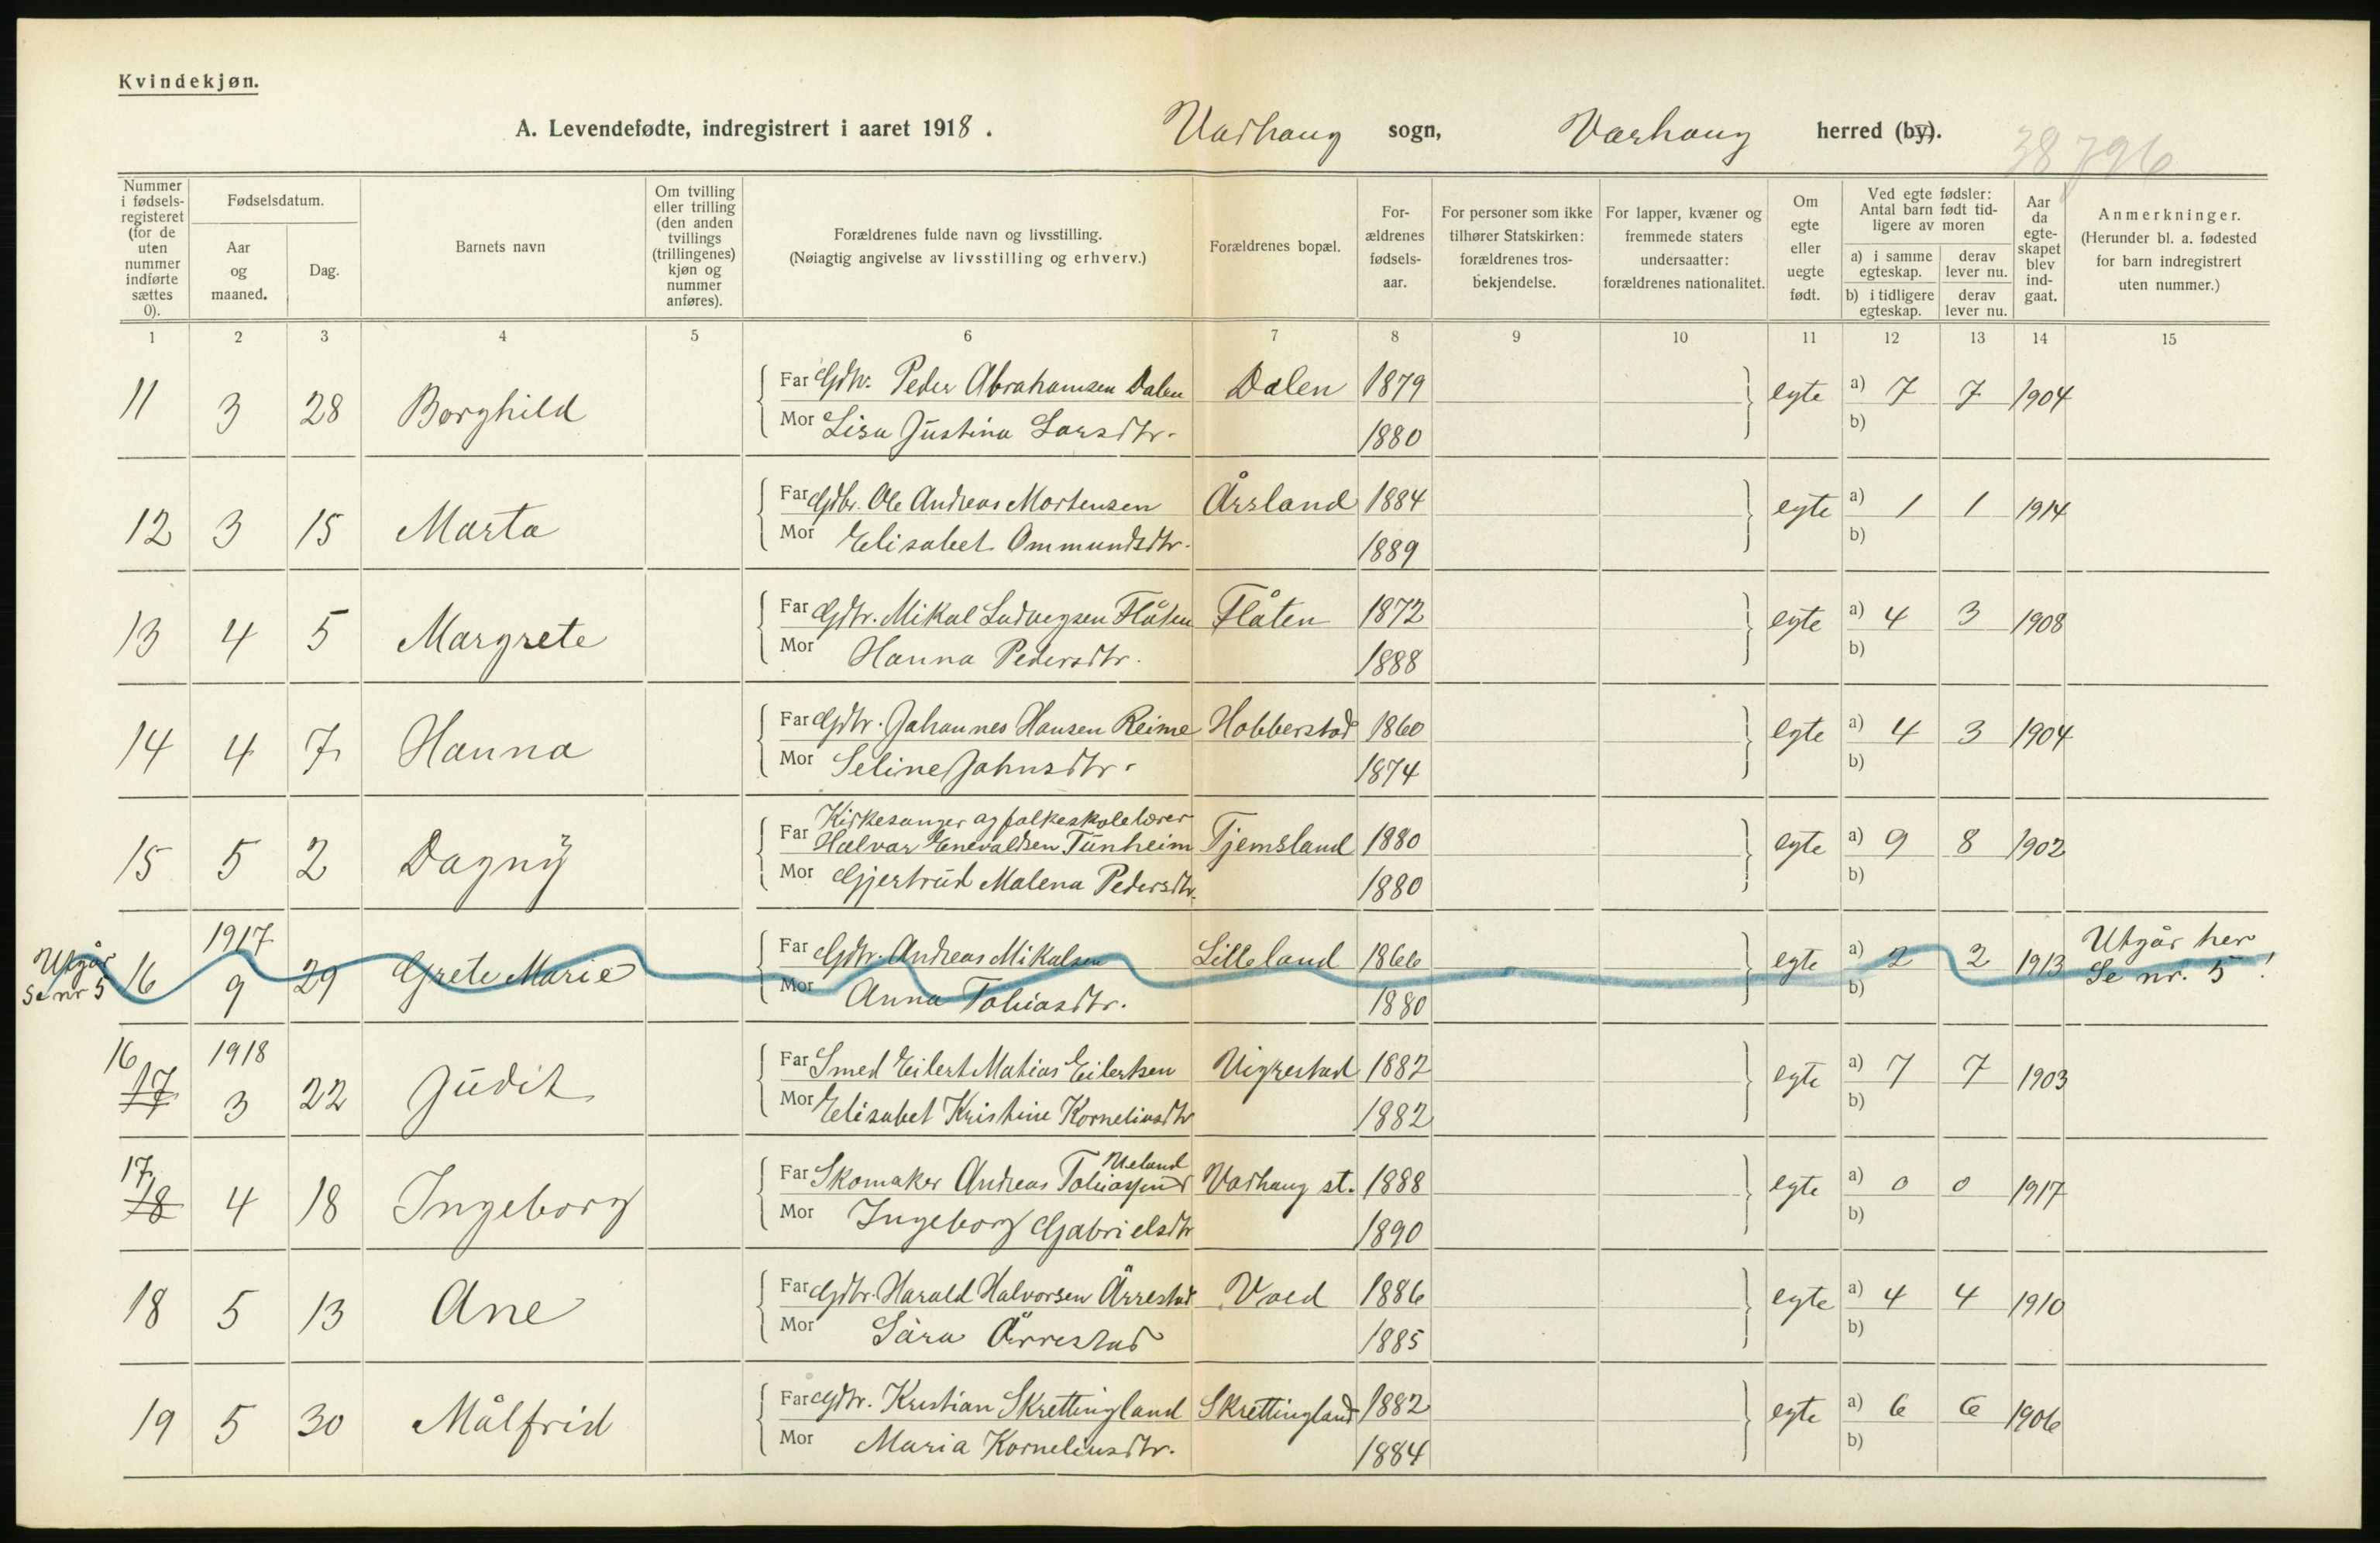 Kvindekjøn.
A. Levendefødte, indregistrert i aaret 1918. Varhaug sogn, Varhaug herred (by).
38 796
Nummer i fødsels-registeret (for de uten nummer indførte sættes 0).
Fødselsdatum.
Aar og maaned.
Dag.
Barnets navn
Om tvilling eller trilling (den anden tvillings (trillingenes) kjøn og nummer anføres).
Forældrenes fulde navn og livsstilling. (Nøiagtig angivelse av livsstilling og erhverv.)
Forældrenes bopæl.
For-ældrenes fødsels-aar.
For personer som ikke tilhører Statskirken: forældrenes tros-bekjendelse.
For lapper, kvæner og fremmede staters undersaatter: forældrenes nationalitet.
Om egte eller uegte født.
Ved egte fødsler: Antal barn født tid-ligere av moren
a) i samme egteskap.
derav lever nu.
b) i tidligere egteskap.
derav lever nu.
Aar da egte-skapet blev ind-gaat.
Anmerkninger. (Herunder bl. a. fødested for barn indregistrert uten nummer.)
1 2 3 4 5 6 7 8 9 10 11 12 13 14 15
11 3 28 Borghild Far Gdbr. Peder Abrahamsen Dalen Dalen 1879 egte a) 7 7 1904
Mor Lisa Justina Larsdtr. 1880 b)
12 3 15 Marta Far Gdbr. Ole Andreas Mortensen Årsland 1884 egte a) 1 1 1914
Mor Elisabet Ommundsdtr. 1889 b)
13 4 5 Margrete Far Gdbr. Mikal Ludvigsen Flåten Flåten 1872 egte a) 4 3 1908
Mor Hanna Pedersdtr. 1888 b)
14 4 7 Hanna Far Gdbr. Johannes Hansen Reime Hobberstad 1860 egte a) 4 3 1904
Mor Seline Johnsdtr. 1874 b)
Kirkesanger og folkeskolelærer
15 5 2 Dagny Far Halvar Enevaldsen Tunheim Tjemsland 1880 egte a) 9 8 1902
Mor Gjertrud Malena Pedersdtr. 1880 b)
Utgår Se nr 5 16 1917 9 29 Grete Marie Far Gdbr. Andreas Mikalsen Lilleland 1866 egte a) 2 2 1913 Utgår her Se nr. 5 !
Mor Anna Tobiasdtr. 1880 b)
16 17 1918 3 22 Judit Far Smed Eilert Matias Eilertsen Vigrestad 1882 egte a) 7 7 1903
Mor Elisabet Kristine Korneliusdtr 1882 b)
Ueland
17 18 4 18 Ingeborg Far Skomaker Andreas Tobiassen Varhaug st. 1888 egte a) 0 0 1917
Mor Ingeborg Gabrielsdtr 1890 b)
18 5 13 Ane Far Gdbr. Harald Halvorsen Årrestad Voll 1886 egte a) 4 4 1910
Mor Sara Årrestad 1885 b)
19 5 30 Målfrid Far Gdbr. Kristian Skrettingland Skrettingland 1882 egte a) 6 6 1906
Mor Maria Korneliusdtr. 1884 b)